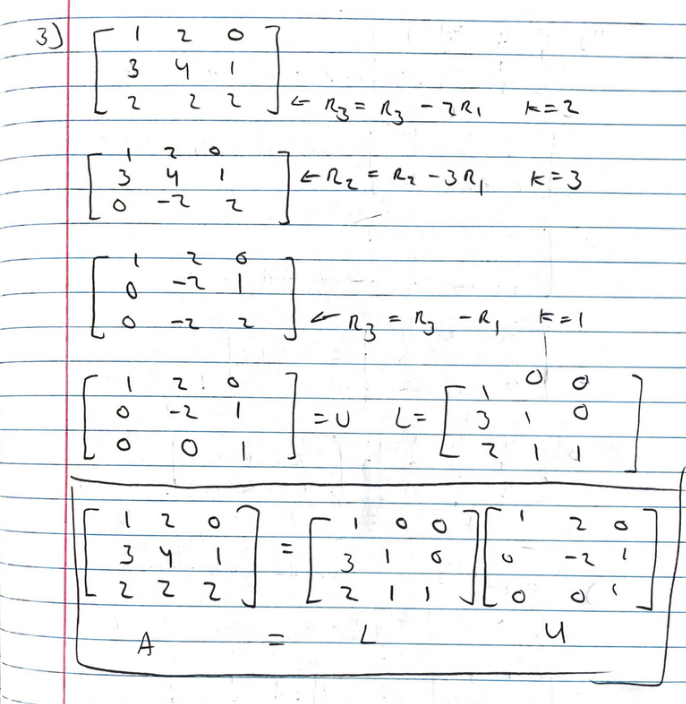 3) [ 1 2 0
3 4 1
2 2 2 ] ← R₃ = R₃ - 2R₁ K=2
[ 1 2 0
3 4 1 ← R₂ = R₂ - 3R₁ K=3
0 -2 2 ]
[ 1 2 0
0 -2 1
0 -2 2 ] ← R₃ = R₃ - R₁ K=1
[ 1 2 0
0 -2 1
0 0 1 ] = U L = [ 1 0 0
3 1 0
2 1 1 ]
[ 1 2 0
3 4 1
2 2 2 ] = [ 1 0 0
3 1 0
2 1 1 ] [ 1 2 0
0 -2 1
0 0 1 ]
A = L U